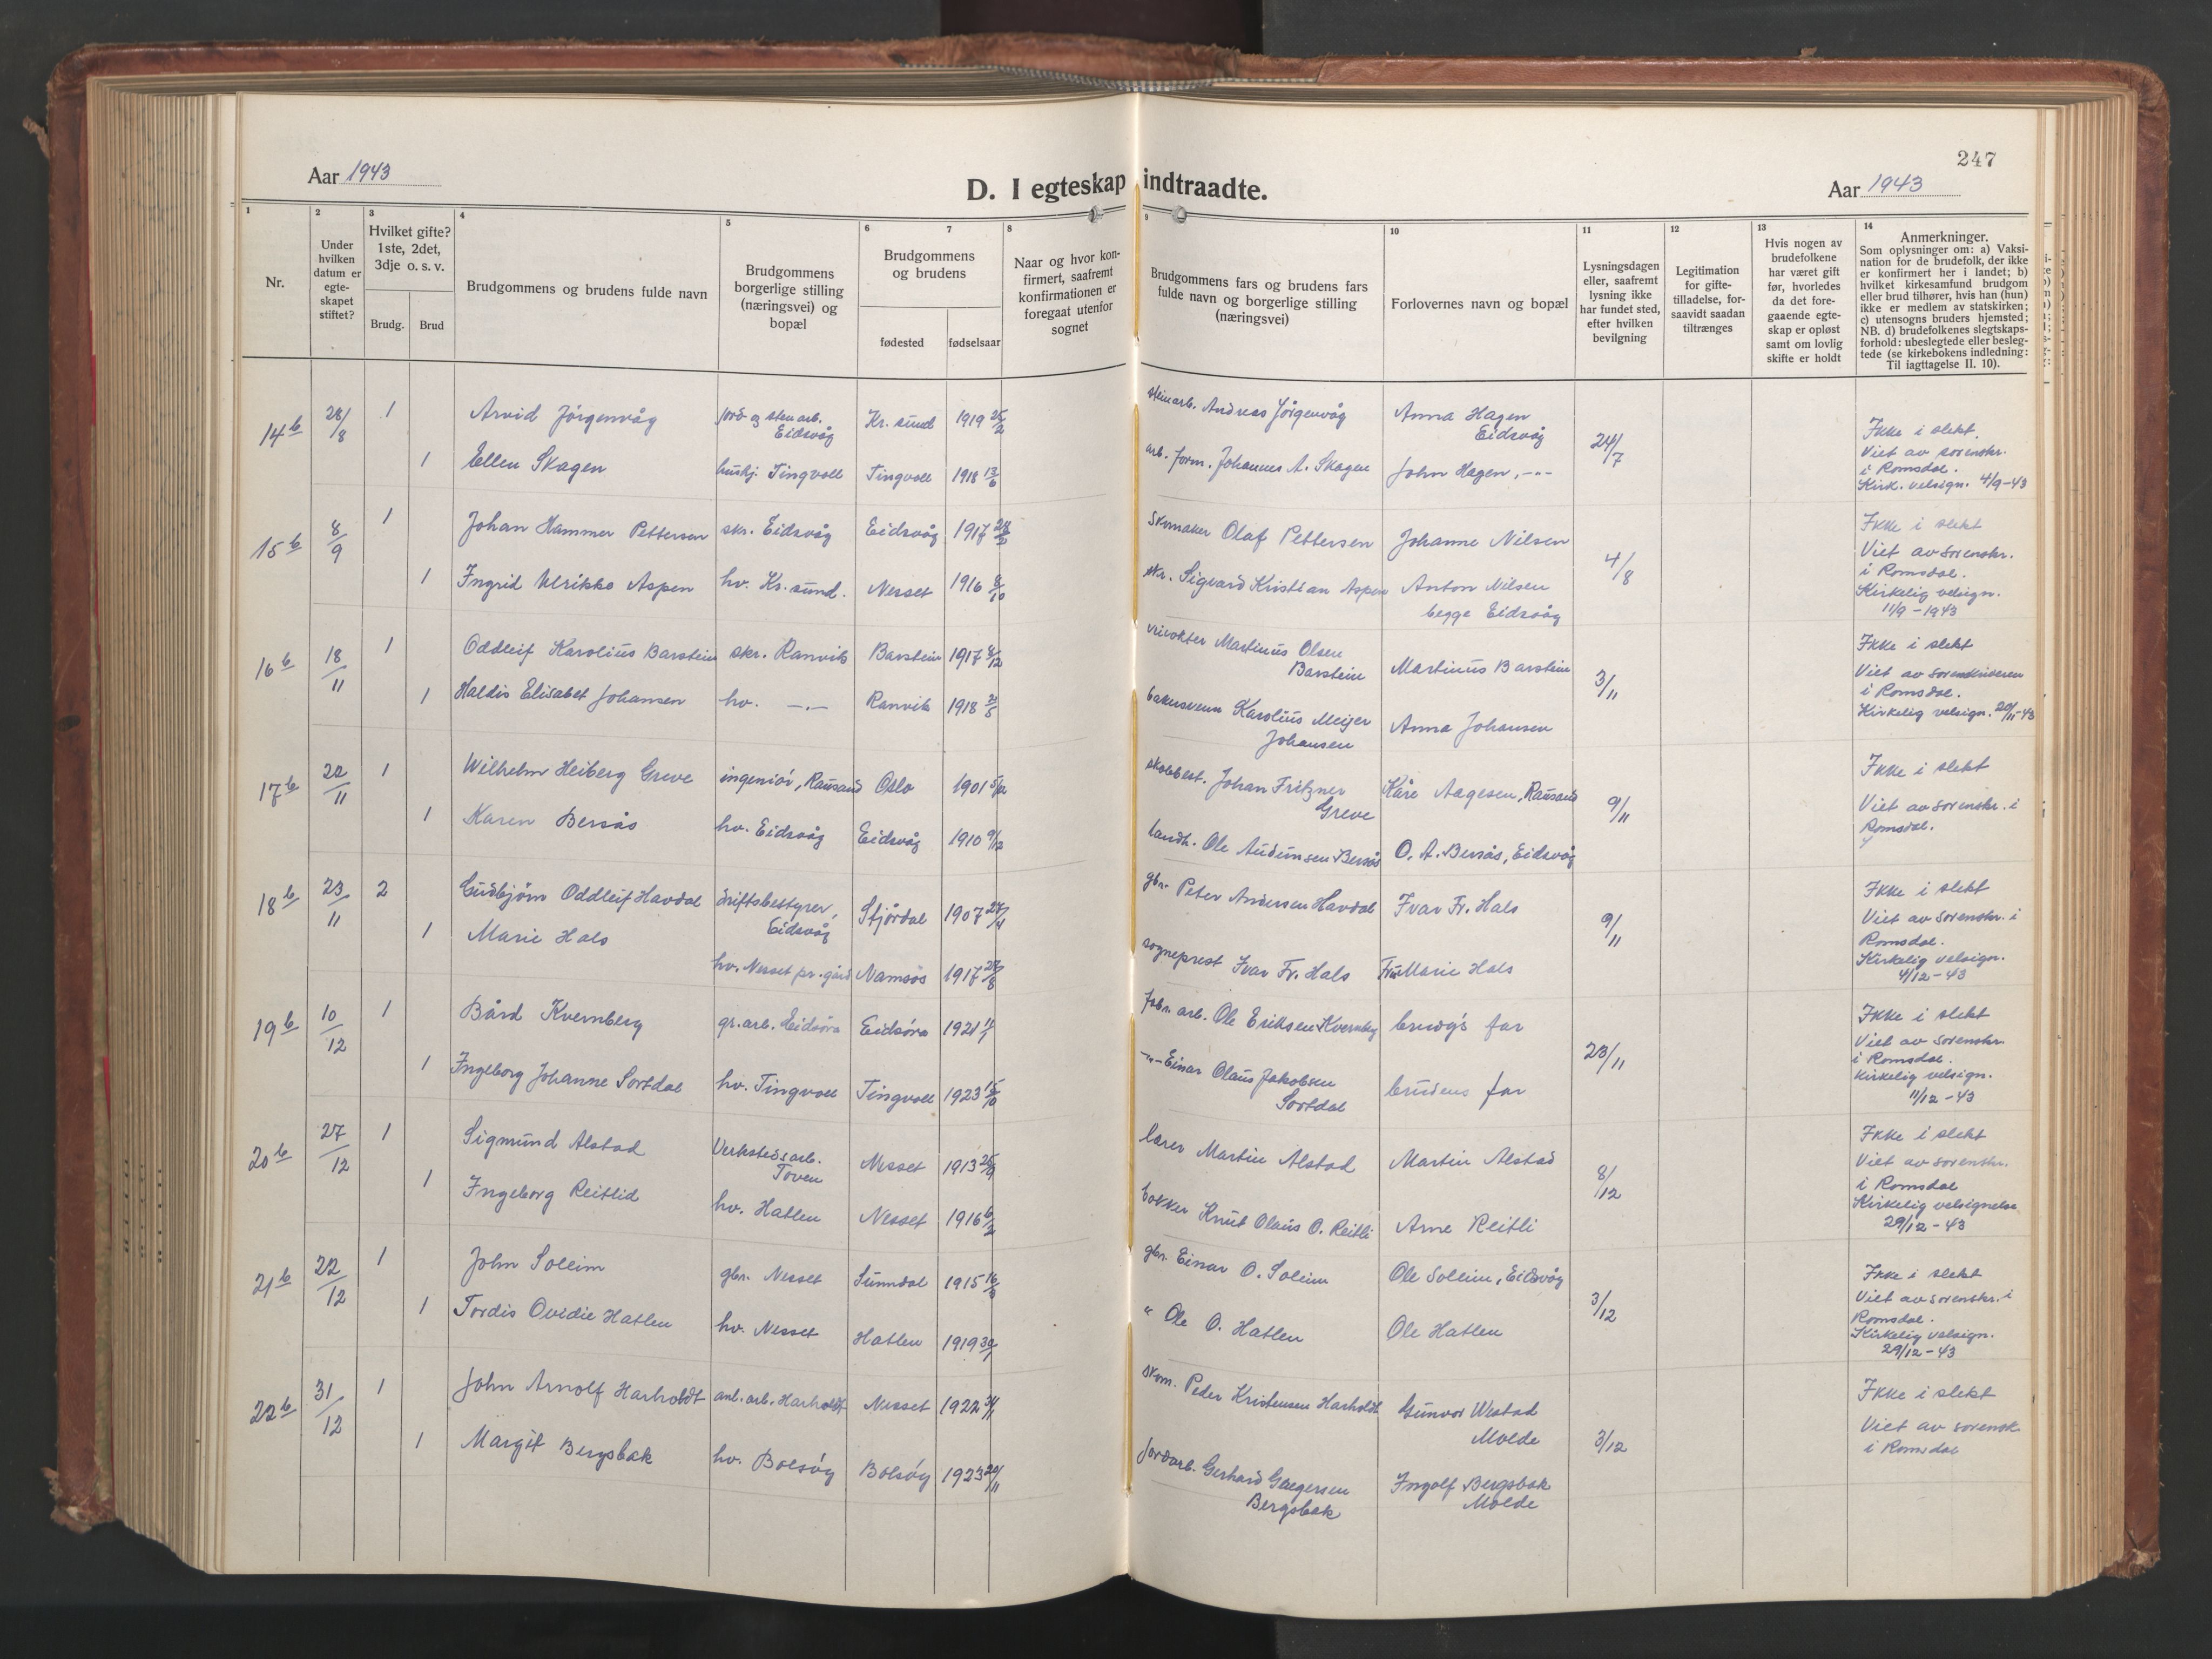 247
Aar 1943
D. I egteskap indtraadte.
Aar 1943
1
Nr.
2
Under hvilken datum er egte-skapet stiftet?
3
Hvilket gifte? 1ste, 2det, 3dje o. s. v.
Brudg.
Brud
4
Brudgommens og brudens fulde navn
5
Brudgommens borgerlige stilling (næringsvei) og bopæl
6
7
Brudgommens og brudens
fødested
fødselsaar
8
Naar og hvor kon-firmert, saafremt konfirmationen er foregaat utenfor sognet
9
Brudgommens fars og brudens fars fulde navn og borgerlige stilling (næringsvei)
10
Forlovernes navn og bopæl
11
Lysningsdagen eller, saafremt lysning ikke har fundet sted, efter hvilken bevilgning
12
Legitimation for gifte-tilladelse, for-saavidt saadan tiltrænges
13
Hvis nogen av brudefolkene har været gift før, hvorledes da det fore-gaaende egte-skap er opløst samt om lovlig skifte er holdt
14
Anmerkninger.
Som oplysninger om: a) Vaksi-nation for de brudefolk, der ikke er konfirmert her i landet; b) hvilket kirkesamfund brudgom eller brud tilhører, hvis han (hun) ikke er medlem av statskirken; c) utensogns bruders hjemsted; NB. d) brudefolkenes slegtskaps-forhold: ubeslegtede eller besleg-tede (se kirkebokens indledning: Til iagttagelse II. 10).
14 b 28/8 1 Arvid Jörgenvåg jord og sten arb. Eidsvåg Kr. sund 1919 25/2 steinarb. Andreas Jörgenvåg Anna Hagen Eidsvåg 24/7 Ikke i slekt.
Viet av sorenskr. i Romsdal.
Kirk. velsign. 4/9-43
1 Ellen Skagen hushj. Tingvoll Tingvoll 1918 13/6 arb. form. Johannes A. Skagen John Hagen, -"-
15 b 8/9 1 Johan Hammer Pettersen skr. Eidsvåg Eidsvåg 1917 Skomaker Olaf Pettersen Johanne Nilsen 4/8 Ikke i slekt
Viet av sorenskr. i Romsdal.
Kirkelig velsign. 11/9-1943
1 Ingrid Ulrikke Aspen hv. Kr. sund. Nesset 1916 8/10 skr. Sigvard Kristian Aspen Anton Nilsen begge Eidsvåg
16 b 18/11 1 Oddleif Karolius Barstein skr. Ranvik Barstein 1917 8/12 Martinus Olsen Barstein Martinus Barstein 3/11 Ikke i slekt
Viet av sorenskriveren i Romsdal.
Kirkelig velsign. 20/11-43
1 Haldis Elisabet Johansen hv. -"- Ranvik 1918 bakersvenn Karolius Meijer Johansen Anna Johansen
17 b 22/11 1 Wilhelm Heiberg Greve ingeniör, Rausand Oslo 1901 skolebest. Johan Fritzner Greve Kåre Aagesen, Rausand 9/11 Ikke i slekt
Viet av sorenskr. i Romsdal.
1 Karen Bersås hv. Eidsvåg Eidsvåg 1910 9/12 landh. Ole Audunsen Bersås O. A. Bersås, Eidsvåg
18 b 23/11 2 Gudbjörn Oddleif Havdal driftsbestyrer, Eidsvåg Stjördal 1907 27/4 gbr. Peter Andersen Havdal Ivar Fr. Hals 9/11 Ikke i slekt
Viet av Sorenskr. i Romsdal.
Kirkelig velsign. 4/12-43
1 Marie Hals hv. Nesset pr.gård Namsos 1917 sogneprest Ivar Fr. Hals Fru Marie Hals
19 b 10/12 1 Bård Kvernberg gr.arb. Eidsöra Eidsöra 1921 fabr. arb. Ole Eriksen Kvernberg brudg's far 23/11 Ikke i slekt
Viet av sorenskr. i Romsdal.
Kirkelig velsign. 11/12-43
1 Ingeborg Johanne Sortdal hv. Tingvoll Tingvoll 1923 15/10 -"- Einar Olaus Jakobsen Sortdal brudens far
20 b 27/12 1 Sigmund Alstad Verkstedsarb. Toven Nesset 1913 lærer Martin Alstad Martin Alstad 8/12 Ikke i slekt
Viet av sorenskr. i Romsdal
Kirkelig velsignelse 29/12-43
1 Ingeborg Reitlid hv. Hatlen Nesset 1916 bökker Knut Olaus O. Reitli Arne Reitli
21 b 22/12 1 John Soleim gbr. Nesset Sunndal 1915 gbr. Einar O. Soleim Ole Solein, Eidsvåg 3/12 Ikke i slekt
Viet av sorenskr. i Romsdal.
Kirkelig velsign. 29/12-43
1 Tordis Ovidie Hatlen hv. Nesset Hatlen 1919 30/1 " Ole O. Hatlen Ole Hatlen
22 b 31/12 1 John Arnolf Harholdt anl.arb. Harholdt Nesset 1922 skom. Peder Kristensen Harholdt Gunvor Westad Molde 3/12 Ikke i slekt
Viet av sorensk. i Romsdal
1 Margit Bergsbak hv. Bolsöy Bolsöy 1923 20/11 jordarb. Gerhard Gregersen Bergsbak Ingolf Bergsbak Molde